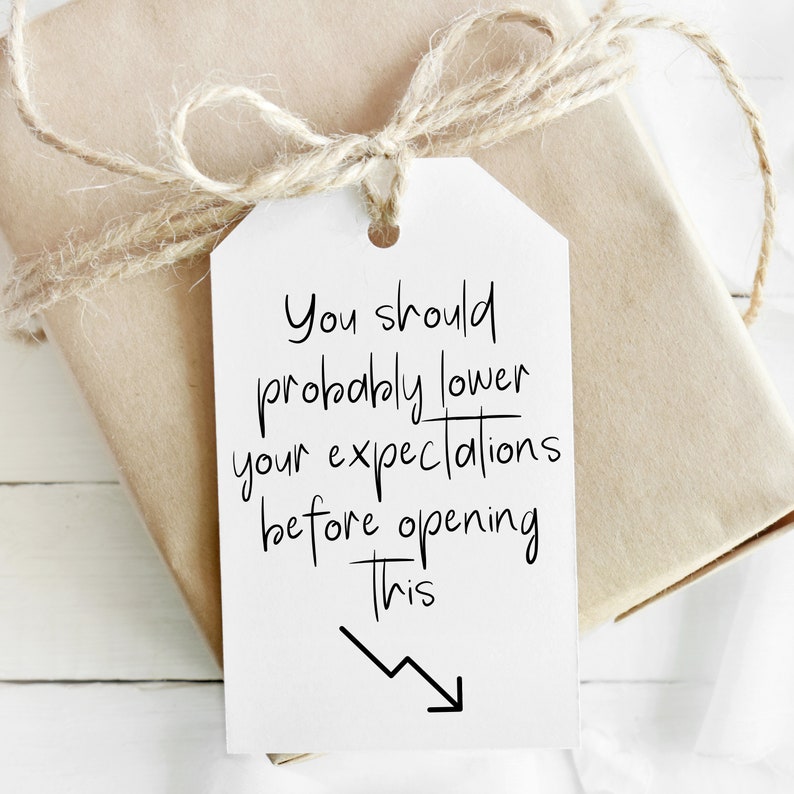 You should
probably lower
your expectations
before opening
this